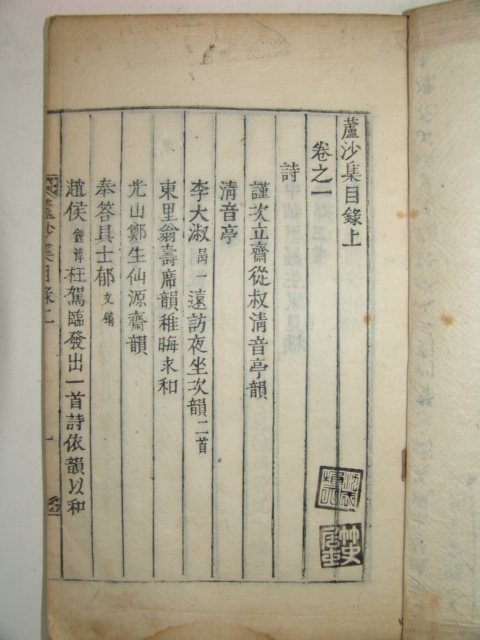 蘆沙集目錄上
卷之一
詩
謹次立齋從叔清音亭韻
清音亭
李大淑昌一遠訪夜坐次韻二首
東里翁壽席韻稚晦求和
光山鄭生仙源齋韻
奉答具士郁文鏞
趙侯 枉駕臨發出一首詩依韻以和
蘆沙集目錄上
一
竹史